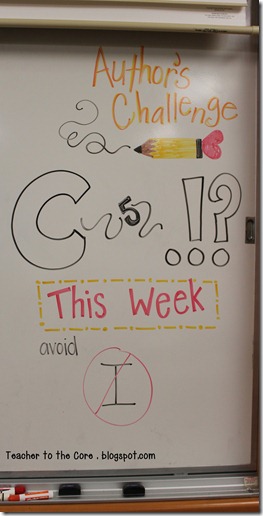 Author's
Challenge
C 5 .!?
This Week
avoid
I
Teacher to the Core . blogspot.com